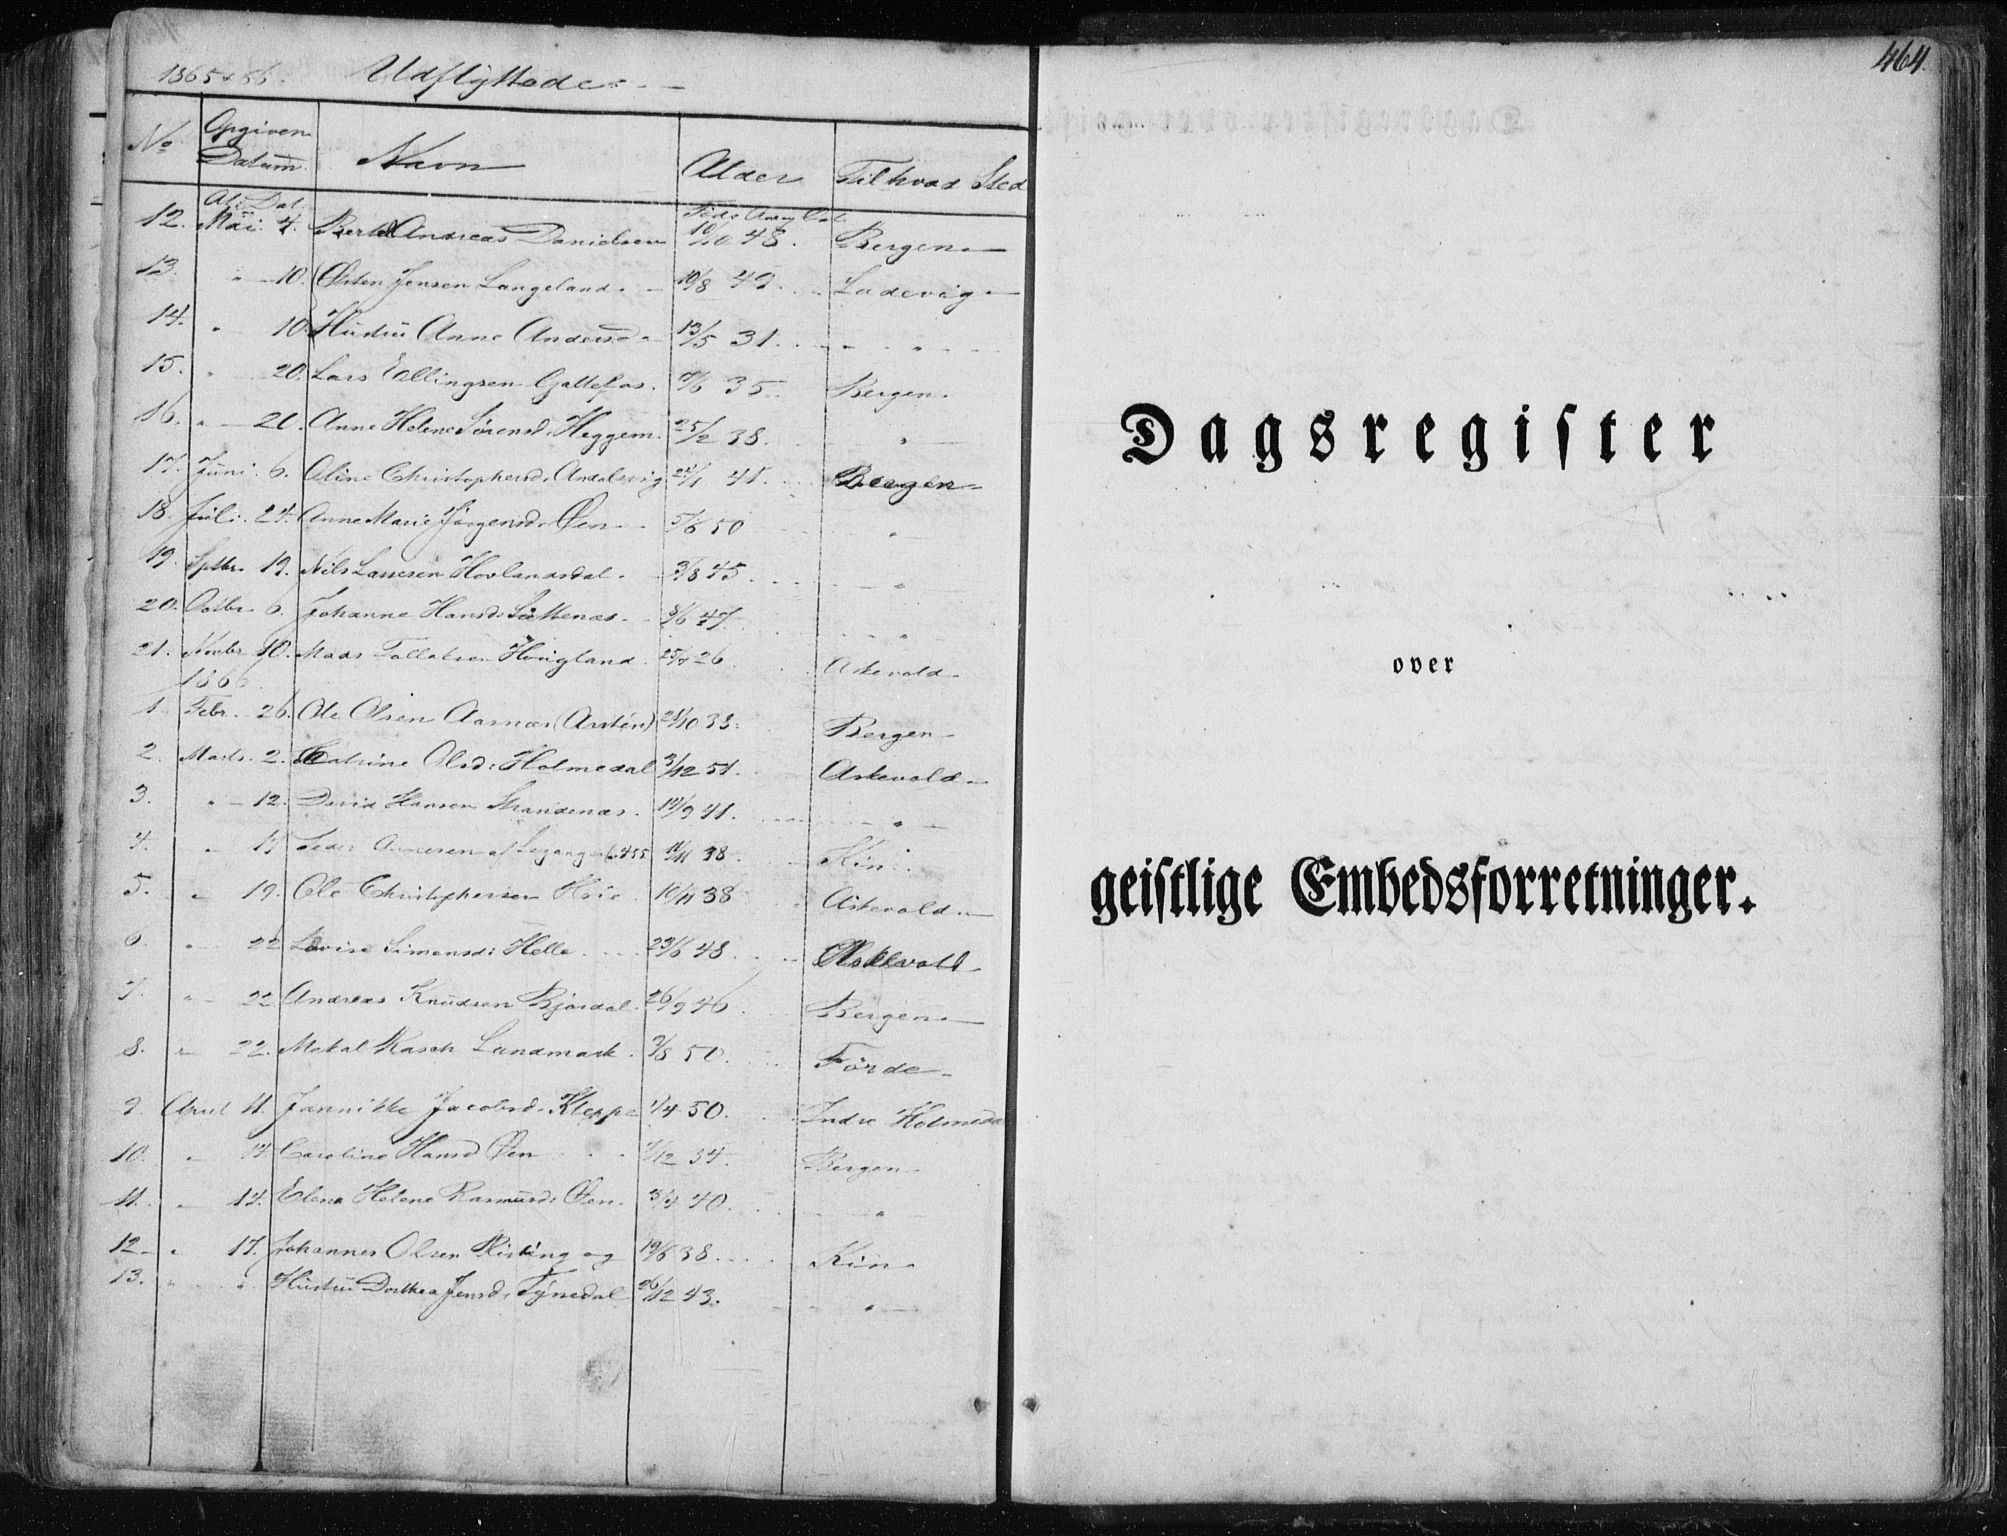 1865 & 66. Udflyttede.
No Opgiven Datum Navn Alder Til hvad Sted
Att. Dat. Føds Aar og Dat
12. Mai 4. Bertel Andreas Danielsen 10/10 48. Bergen
13. " 10. Østen Jensen Langeland 10/8 49. Ladevig
14. " 10. Hustru Anne Andersd 13/5 31. "
15. " 20. Lars Ellingsen 35. Bergen
16. " 20. Anne Helene Sørensd. Heggem. 25/2 38. "
17. Juni 6. Oline Christophersd. 24/1 41. Bergen
18. Juli 24. Anne Marie Jørgensd. Øen 5/6 50 "
19. Septbr. 19. Nils Larsen Hovlandsdal 3/8 45. "
20. Octbr. 6. Johanne Hansd. 8/6 47. "
21. Novbr 10. Mads Tollefsen Hougland 26 Askevold
1866
1. Febr. 26. Ole Olsen Aarnæs 33. Bergen
2. Marts 2. Catrine Olsd: Holmedal 3/12 51. Askevold
3. " 12. David Hansen Strandenæs 12/9 41. "
4. " 38. Kin
5. " 19. Ole Christophersen 10/11 38 Askevold
6. " 22 Lovise Simensd: Helle 23/6 48. Askevold
7. " 22 Andreas Knudsen Bjordal 26/9 46. Bergen
8. " 22. Rasch Landmark 3/8 50. Førde
9. April 11. Jannikke Jacobsd. Kleppe 1/4 50. Indre Holmedal
10. " 14. Caroline Hansd Øen 1/12 34. Bergen
11. " 14. Elena Helene Rasmusd. Øen 3/4 40. "
12. " 17. Johannes Olsen Risting og 19/6 38. Kin
13. " " Hustru Dorthea Jensd. Tysedal 26/12 43. "
464.
Dagsregister
over
geistlige Embedsforretninger.